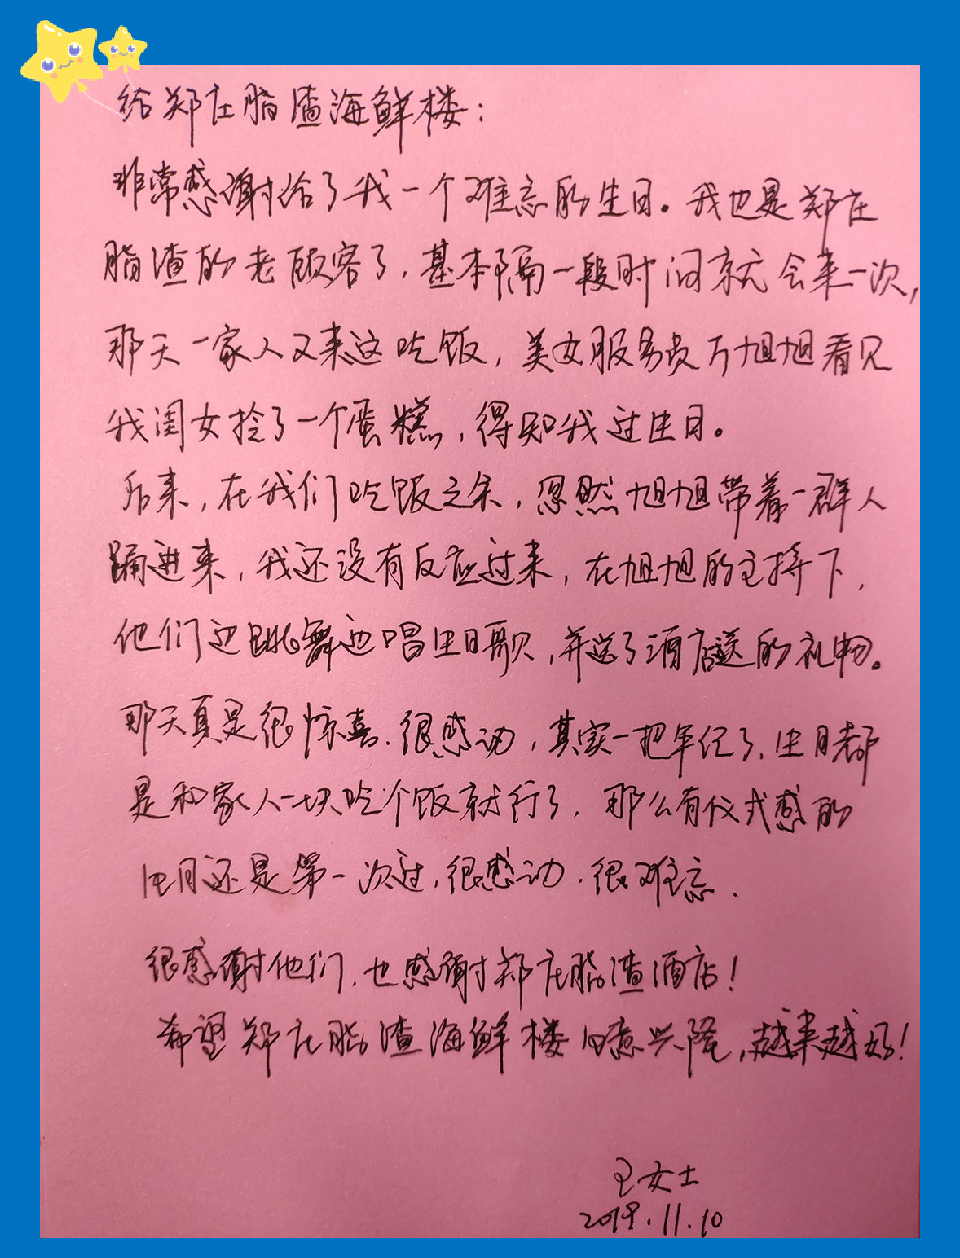 给郑庄脂渣海鲜楼：
非常感谢给了我一个难忘的生日。我也是郑庄
脂渣的老顾客了，基本隔一段时间就会来一次，
那天一家人又来这吃饭，美女服务员万旭旭看见
我闺女拎了一个蛋糕，得知我过生日。
后来，在我们吃饭之余，忽然旭旭带着一群人
踊进来，我还没有反应过来，在旭旭的主持下，
他们边跳舞边唱生日歌，并送了酒店送的礼物。
那天真是很惊喜，很感动，其实一把年纪了，生日都
是和家人一块吃个饭就行了，那么有仪式感的
生日还是第一次过，很感动，很难忘．
很感谢他们，也感谢郑庄脂渣酒店！
希望郑庄脂渣海鲜楼生意兴隆，越来越好！
王女士
2019.11.10